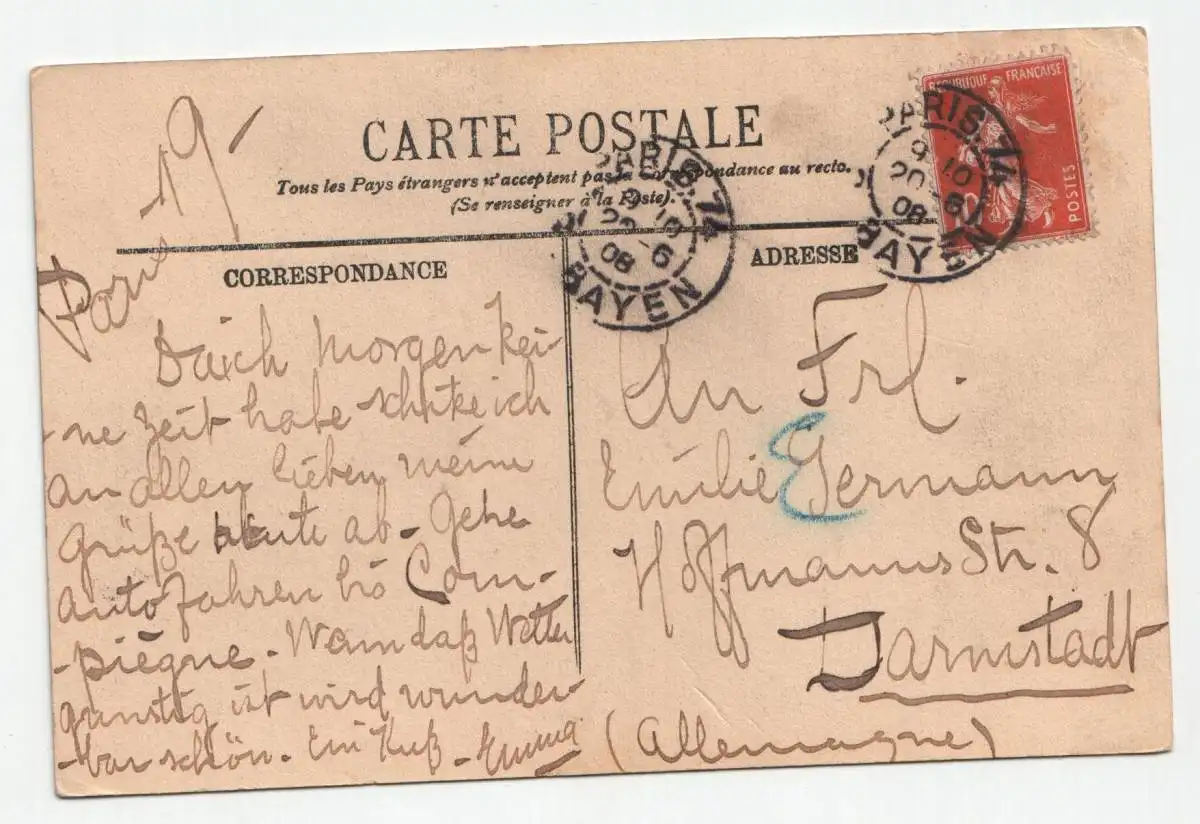 Paris 19-
CARTE POSTALE
Tous les Pays étrangers n'acceptent pas la correspondance au recto.
(Se renseigner à la Poste).
CORRESPONDANCE
Da ich morgen kei-
-ne Zeit habe schike ich
an allen lieben meine
Grüße heute ab- Gehe
Auto fahren bis Com-
-piègne. Wenn daß Wetter
günstig ist wird wunder-
-bar schön. Ein Kuß - Emma
ADRESSE
An Frl.
Emilie Germann
Hoffmanns Str. 8
Darmstadt
(Allemagne)
REPUBLIQUE FRANÇAISE
POSTES
PARIS. 74
9 10
20 - 6
08
R. BAYEN
PARIS. 74
9 10
20 - 6
08
R. BAYEN